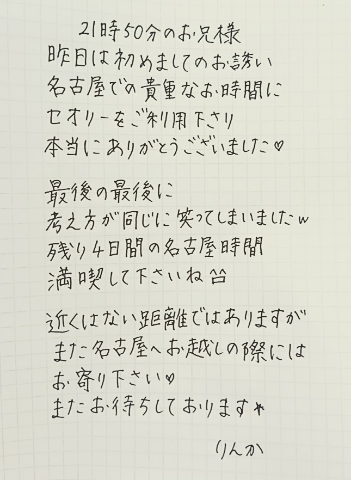 21時50分のお兄様
昨日は初めましてのお誘い
名古屋での貴重なお時間に
セオリーをご利用下さり
本当にありがとうございました♡
最後の最後に
考え方が同じに笑ってしまいましたw
残り4日間の名古屋時間
満喫して下さいね
近くはない距離ではありますが
また名古屋へお越しの際には
お寄り下さい♡
またお待ちしております★
りんか